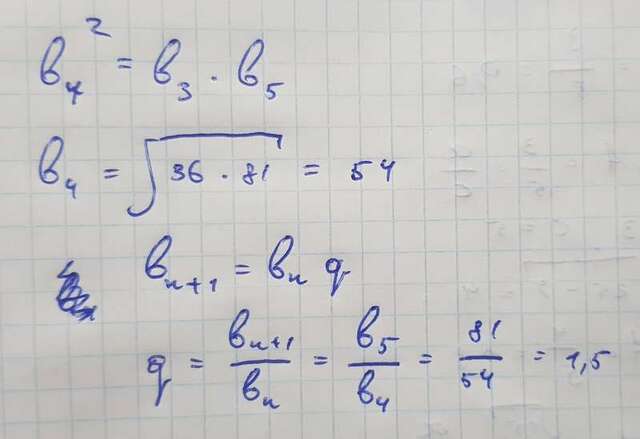 b₄² = b₃ · b₅
b₄ = √36 · 81 = 54
bₙ₊₁ = bₙ q
q = bₙ₊₁/bₙ = b₅/b₄ = 81/54 = 1,5